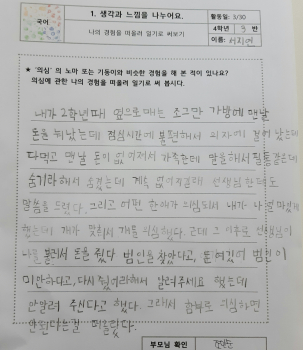 국어
1. 생각과 느낌을 나누어요.
활동일: 3/30
나의 경험을 떠올려 일기로 써보기
4학년 3 반
이름:
★ '의심'의 노마 또는 기동이와 비슷한 경험을 해 본 적이 있나요?
의심에 관한 나의 경험을 떠올려 일기로 써 봅시다.
내가 2학년때 옆으로매는 조그만 가방에 맨날
돈을 뒀는데 점심시간에 불편해서 의자에 걸어 놨는데
다먹고 맨날 돈이 없어져서 가족한테 말을해서 필통같은데
숨기라해서 숨겼는데 계속 없어지길래 선생님한테도
말씀을 드렸다. 그리고 어떤 한애가 의심되서 내가 나쁠
했는데 걔가 맞춰서 걔를 의심했다. 근데 그 이후로 선생님이
나를 불러서 돈을 줬다 범인을 찾았다고, 돈 여깄어 범인이
미안하다고, 다시 줬어라해서 알려주세요 했는데
안알려 주신다고 했다. 그래서 함부로 의심하면
안된다는걸 떠올랐다.
부모님 확인